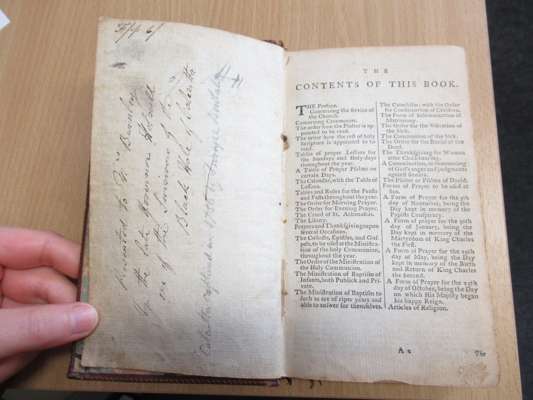 Presented to
by the late Governor Holwell
one of the survivors of the
Black Hole of Calcutta
Calcutta captured in 1756 by
THE
CONTENTS OF THIS BOOK.
THE Preface.
Concerning the Service of
the Church.
Concerning Ceremonies.
The order how the Psalter is ap-
pointed to be read.
The order how the rest of holy
Scripture is appointed to be
read.
Tables of proper Lessons for
the Sundays and Holy-days
throughout the year.
A Table of Proper Psalms on
certain Days.
The Calendar, with the Table of
Lessons.
Tables and Rules for the Feasts
and Fasts throughout the year.
The Order for Morning Prayer.
The Order for Evening Prayer.
The Creed of St. Athanasius.
The Litany.
Prayers and Thanksgivings upon
several Occasions.
The Collects, Epistles, and Gos-
pels, to be used at the Ministra-
tion of the holy Communion,
throughout the year.
The Order of the Ministration of
the Holy Communion.
The Ministration of Baptism of
Infants, both Publick and Pri-
vate.
The Ministration of Baptism to
such as are of riper years and
able to answer for themselves.
The Catechism; with the Order
for Confirmation of Children.
The Form of Solemnization of
Matrimony.
The Order for the Visitation of
the Sick.
The Communion of the Sick.
The Order for the Burial of the
Dead.
The Thanksgiving for Women
after Child-bearing.
A Commination, or denouncing
of God's anger and judgments
against Sinners.
The Psalter or Psalms of David.
Forms of Prayer to be used at
Sea.
A Form of Prayer for the 5th
day of November, being the
Day kept in memory of the
Papists Conspiracy.
A Form of prayer for the 30th
day of January, being the
Day kept in memory of the
Martyrdom of King Charles
the First.
A Form of Prayer for the 29th
day of May, being the Day
kept in memory of the Birth
and Return of King Charles
the Second.
A Form of Prayer for the 25th
day of October, being the Day
on which His Majesty began
his happy Reign.
Articles of Religion.
A 2
The